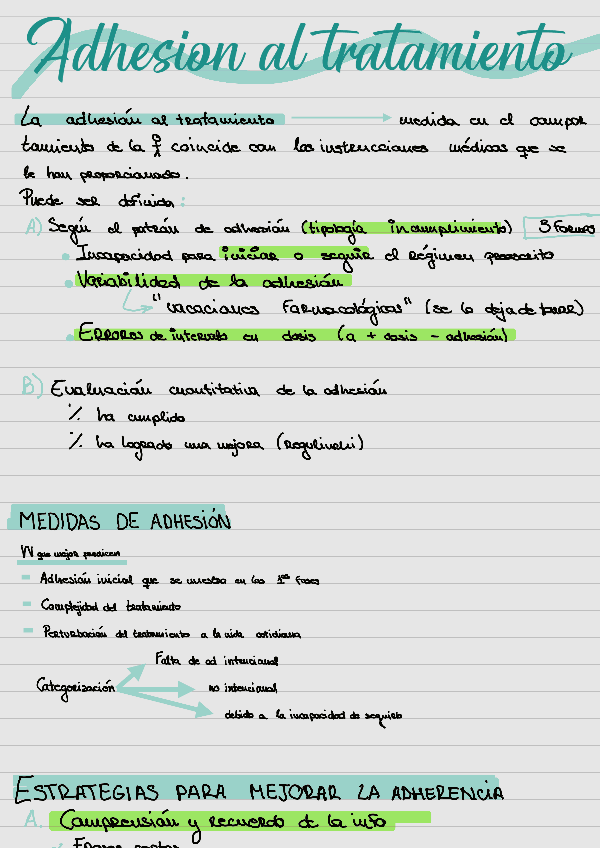 Adhesion al tratamiento
La adhesión al tratamiento → medida en el compor
tamiento de la coincide con las instrucciones médicas que se
le han proporcionado.
Puede ser definida:
A) Según el patrón de adhesión (tipología incumplimiento) 3 Formas
• Incapacidad para iniciar o seguir el régimen prescrito
• Variabilidad de la adhesión
"vacaciones Farmacológicas" (se lo deja de tomar)
• Errores de intervalo en dosis (a + dosis - adhesión)
B) Evaluación cuantitativa de la adhesión
% ha cumplido
% ha logrado una mejora
MEDIDAS DE ADHESIÓN
VV que mejor predicen
- Adhesión inicial que se muestra en las 1as Fases
- Complejidad del tratamiento
- Perturbación del tratamiento a la vida cotidiana
Falta de ad intencional
Categorización no intencional
debido a la incapacidad de seguirlo
ESTRATEGIAS PARA MEJORAR LA ADHERENCIA
A. Comprensión y recuerdo de la info